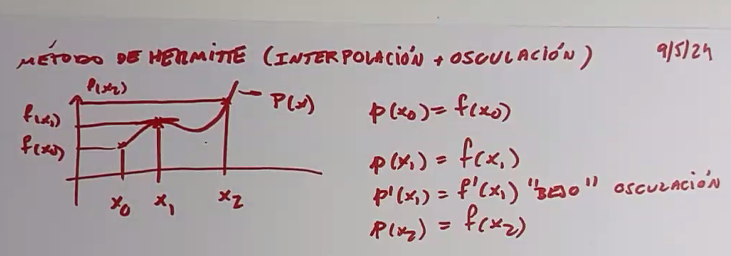 MÉTODO DE HERMITTE (INTERPOLACIÓN + OSCULACIÓN) 9/5/24
P(x₂)
f(x₁)
f(x₀)
P(x)
x₀ x₁ x₂
p(x₀) = f(x₀)
p(x₁) = f(x₁)
p'(x₁) = f'(x₁) "BESO" OSCULACIÓN
P(x₂) = f(x₂)